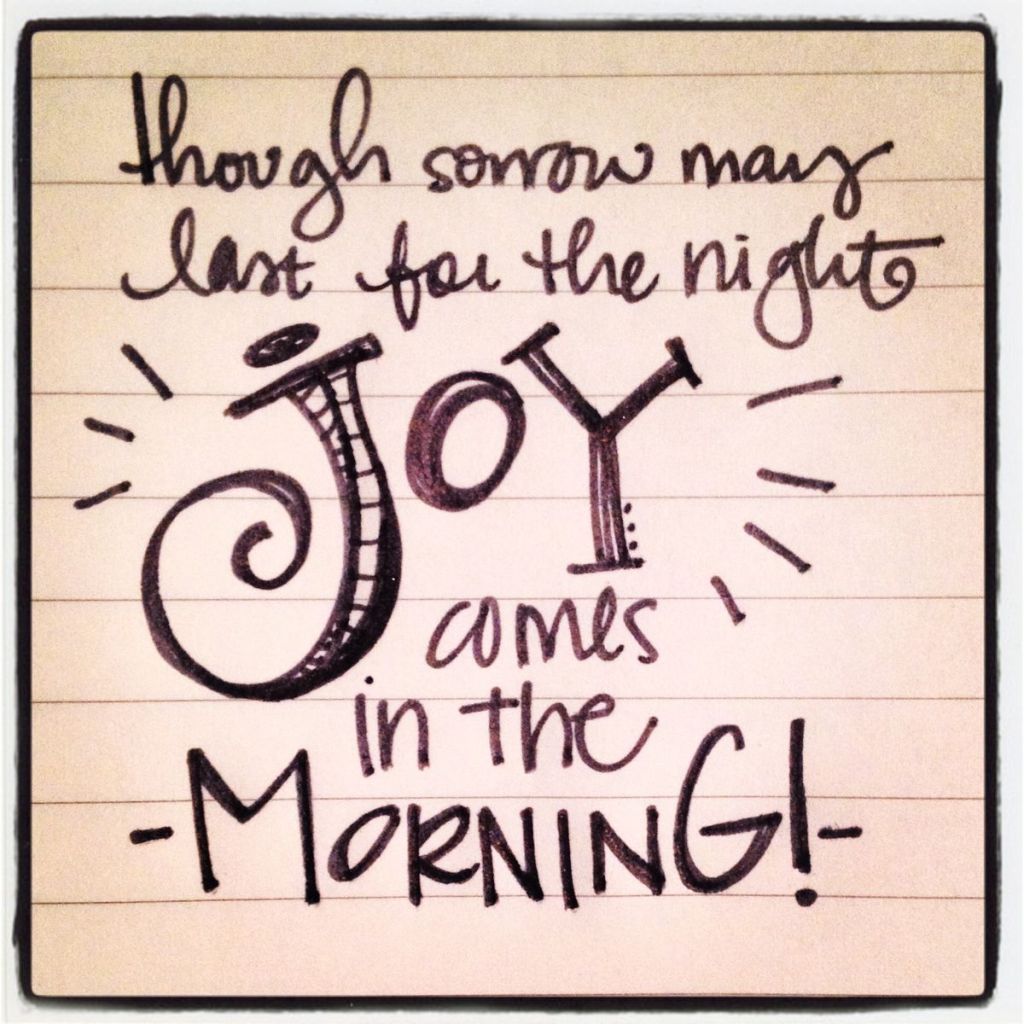 though sorrow may
last for the night
JOY
comes
in the
-MORNING!-